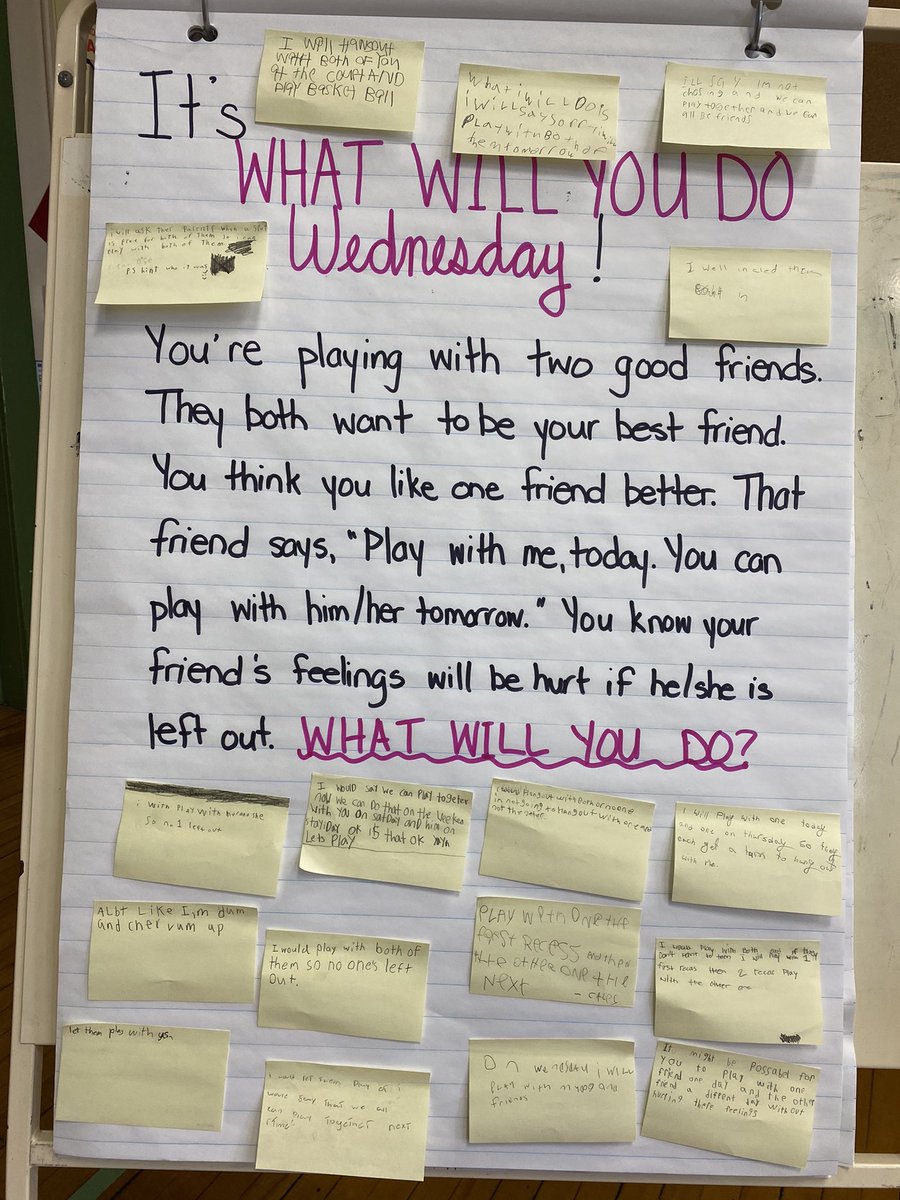 It's
I Will Hangout
With Both of You
at the court AND
Play Basket Ball
What i Will Do is
i Will say sorry i will
Play with Both of
them tomorrow
I'll say I'm not
chosing and we can
Play together and we can
all be friends
WHAT WILL YOU DO
Wednesday!
I will ask ther Parents when a slot
is free for both of Them so I can
play with both of Them
PS hint who it was
I well incled them
in
You're playing with two good friends.
They both want to be your best friend.
You think you like one friend better. That
friend says, "Play with me, today. You can
play with him/her tomorrow." You know your
friend's feelings will be hurt if he/she is
left out. WHAT WILL YOU DO?
i with Play with
So no.1 left out
I would say we can Play togeter
now we can do that on the weeken
with you on satday and him on
ok is that ok
Lets Play
i would Hangout with Both or no one
im not going to hangout with one and
not the other
I will Play with one today
and one on thursday so they
each get a turn to hang out
with me.
Albt Like I,m dum
and cher vum up
I would play with both of
them so no one's left
out.
PLAY with ONE the
first Recess and then
the other one the
Next
I would Play with Both and if they
Don't want to then I will Play with 1
first recas then 2 recas Play
with the other one
let them play with
I would let them Play or i
would say that we all
can Play Together next
time
On wensday i will
Play with my good
friends
It might be Possabel for
you to play with one
friend one day and the other
friend a diffent day with out
hurting there feelings